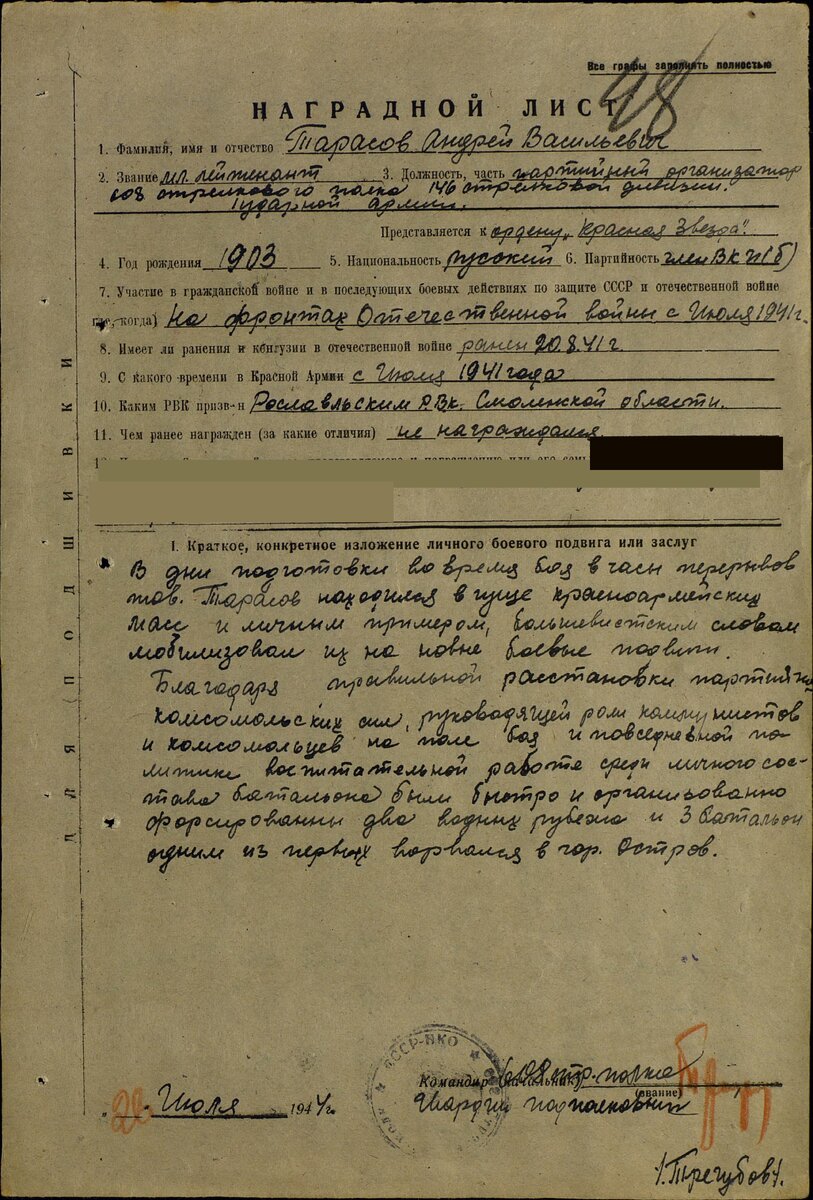 Все графы заполнять полностью
98
НАГРАДНОЙ ЛИСТ
1. Фамилия, имя и отчество Тарасов Андрей Васильевич
2. Звание мл лейтенант 3. Должность, часть партийный организатор
608 стрелкового полка 146 стрелковой дивизии.
1 ударной армии.
Представляется к ордену „Красная Звезда".
4. Год рождения 1903 5. Национальность русский 6. Партийность член ВКП(б)
7. Участие в гражданской войне и в последующих боевых действиях по защите СССР и отечественной войне
где, когда) На фронтах Отечественной войны с Июля 1941 г.
8. Имеет ли ранения и контузии в отечественной войне ранен 20.8.41 г.
9. С какого времени в Красной Армии с Июля 1941 года
10. Каким РВК призв-н Рославльским РВк. Смоленской области.
11. Чем ранее награжден (за какие отличия) не награждался.
I. Краткое, конкретное изложение личного боевого подвига или заслуг
В дни подготовки во время боя в часы перерывов
тов. Тарасов находился в гуще красноармейских
масс и личным примером, большевистским словом
мобилизовал их на новые боевые подвиги.
Благодаря правильной расстановки партийно
комсомольских сил, руководящей роли коммунистов
и комсомольцев на поле боя и повседневной по-
литико воспитательной работе среди личного сос-
тава батальона были быстро и организованно
форсированны два водных рубежа и 3 батальон
одним из первых ворвался в гор. Остров.
Командир (начальник) 608 стр. полка
(звание)
подполковник
„22" Июля 1944 г.
/.Трегубов/.
ДЛЯ ПОДШИВКИ
СССР-НКО